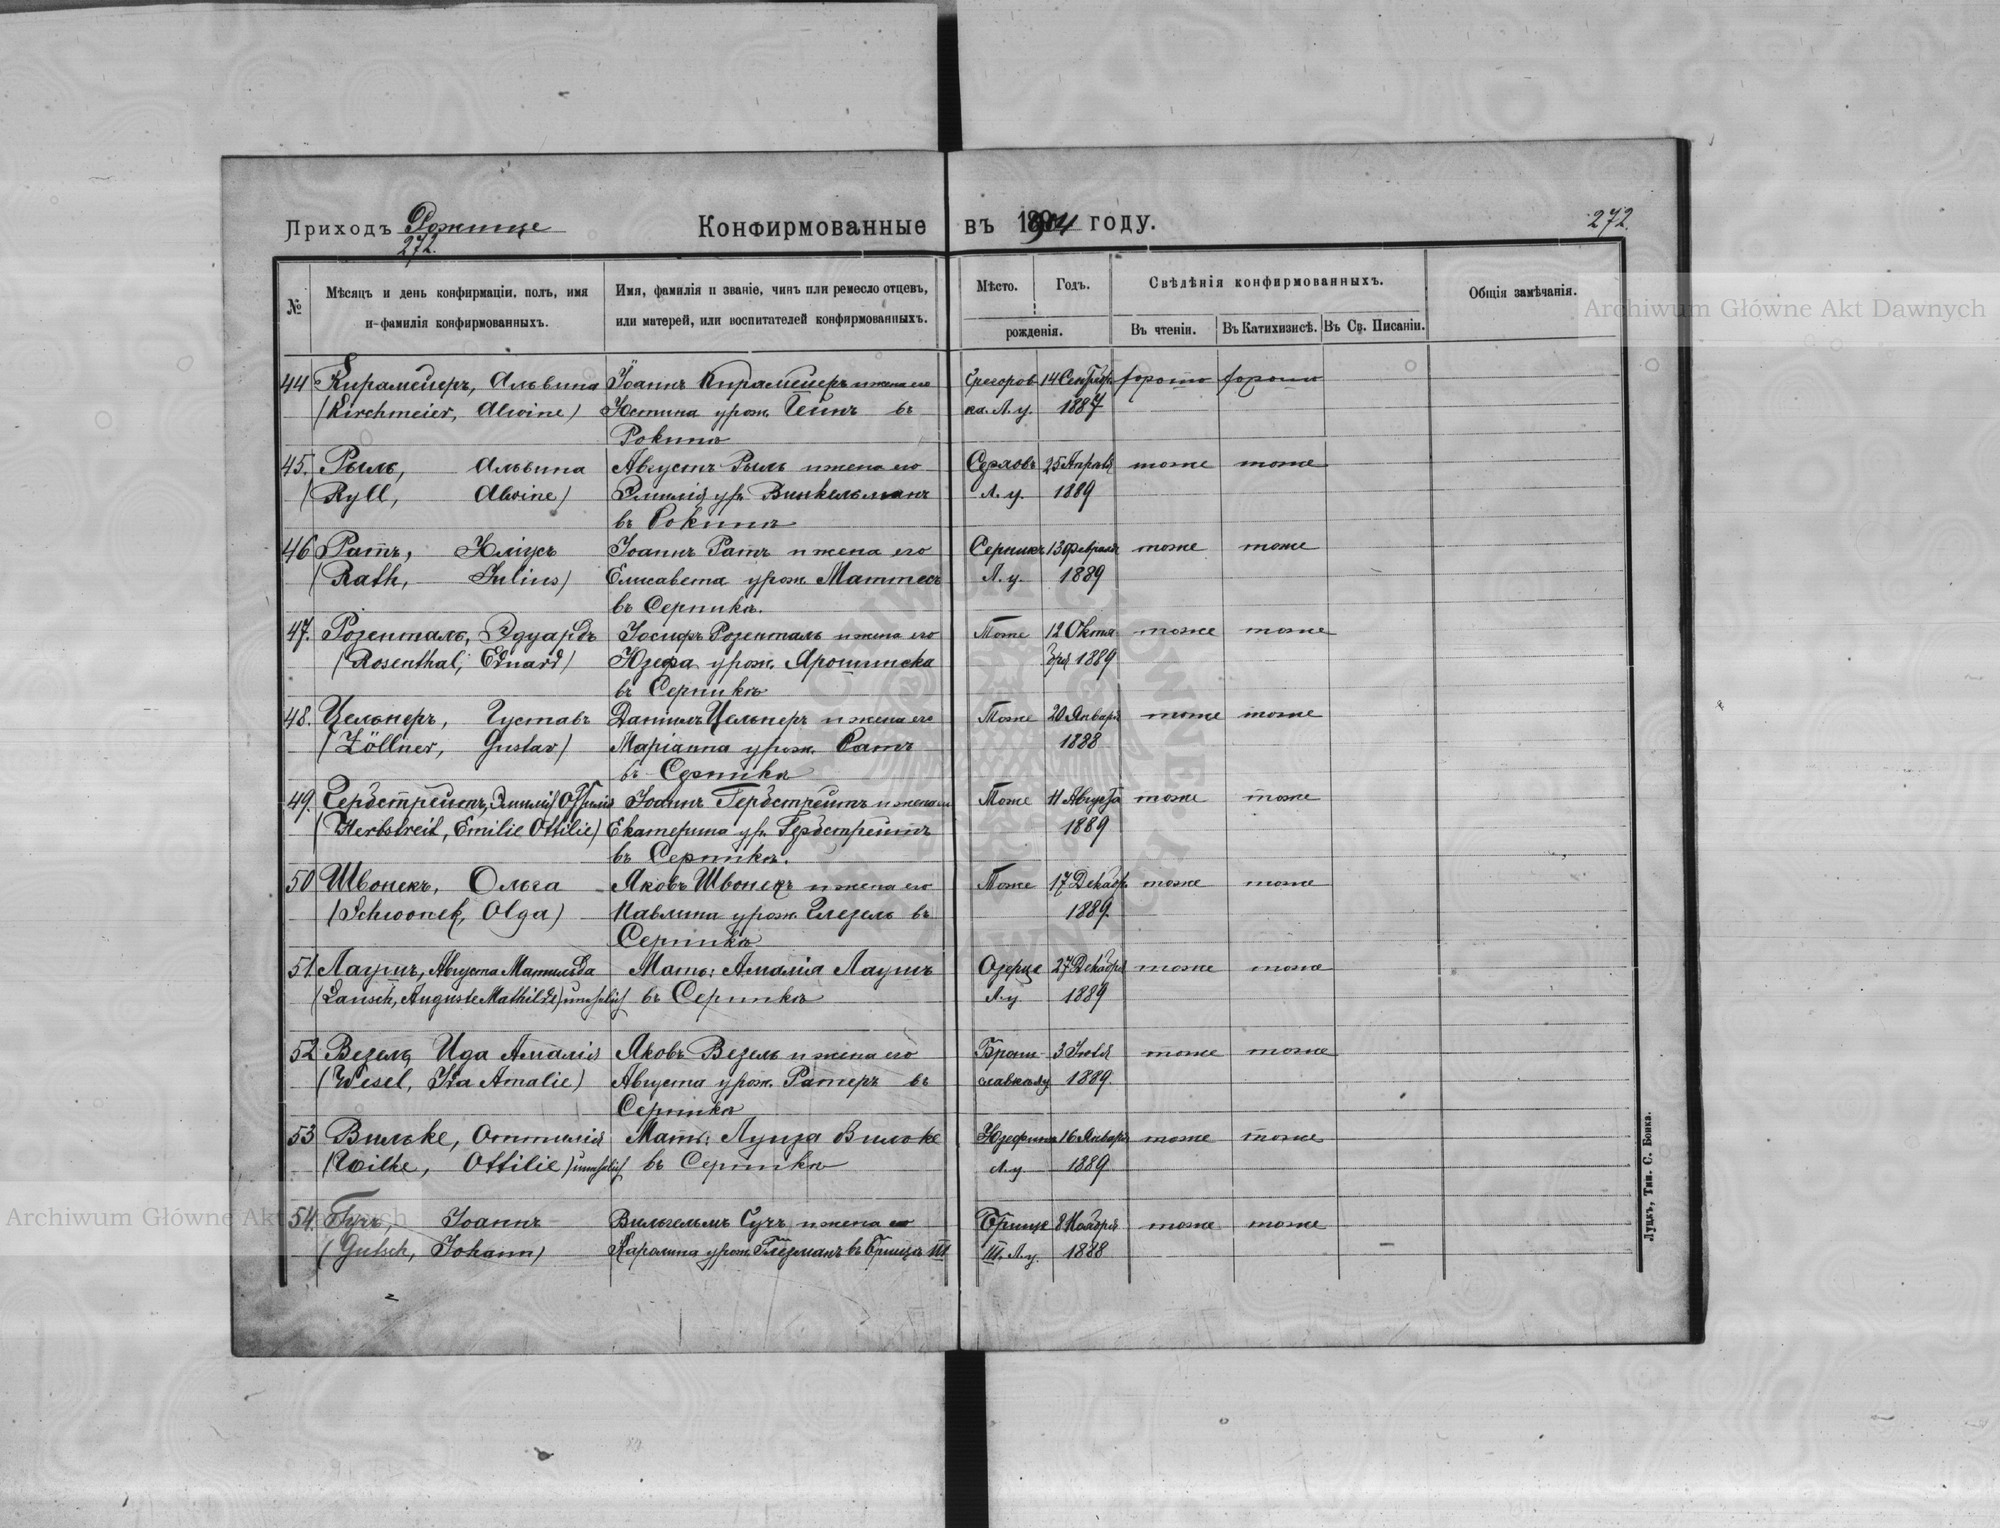 Приходъ Рожище
272.
Конфирмованные въ 1904 году.
272.
№
Мѣсяцъ и день конфирмаціи, полъ, имя
и фамилія конфирмованныхъ.
Имя, фамилія и званіе, чинъ или ремесло отцевъ,
или матерей, или воспитателей конфирмованныхъ.
Мѣсто. Годъ.
рожденія.
Свѣдѣнія конфирмованныхъ.
Въ чтеніи. Въ Катихизисѣ. Въ Св. Писаніи.
Общія замѣчанія.
Archiwum Główne Akt Dawnych
44 Кирхмейеръ, Альвина Іоаннъ Кирхмейеръ и жена его 14 Сентябр. хорошо хорошо
(Kirchmeier, Alwine) Юстина урож. въ ка. Л. у. 1887
Рокини
45. Рыль, Альвина Августъ Рыль и жена его 25 Апрѣля тоже тоже
(Ryll, Alwine) Эмилія ур. Винкельманъ Л. у. 1889
въ Рокини
46 Ратъ, Юліусъ Іоаннъ Ратъ и жена его Серники 13 Февраля тоже тоже
(Rath, Julius) Елисавета урож. Маттесъ Л. у. 1889
въ Серники.
47. Розенталь, Эдуардъ Іосифъ Розенталь и жена его Тоже 12 Октя- тоже тоже
(Rosenthal, Eduard) Юзефа урож. Ярошинска бря 1889
въ Серники
48. Цельнеръ, Густавъ Даніилъ Цельнеръ и жена его Тоже 20 Января тоже тоже
(Zöllner, Gustav) Маріанна урож. Ратъ 1888
въ Серники
49. Гербстрейтъ, Эмилія Оттилія Іоаннъ Гербстрейтъ и жена Тоже 11 Августа тоже тоже
(Herbstreit, Emilie Ottilie) Екатерина ур. Гербстрейтъ 1889
въ Серники.
50 Швонекъ, Ольга Яковъ Швонекъ и жена его Тоже 17 Декабр. тоже тоже
(Schwonek, Olga) Павлина урож. въ 1889.
Серники
51. Лаушъ, Августа Матильда Мать: Амалія Лаушъ Озерце 27 Декабря тоже тоже
(Lausch, Auguste Mathilde) unehelich въ Серники Л. у. 1889
52 Везель, Ида Амалія Яковъ Везель и жена его Брони- 3 Іюля тоже тоже
(Wesel, Ida Amalie) Августа урож. Ратеръ въ славка Л. у. 1889.
Серники
53 Вильке, Оттилія Мать: Луиза Вильке Юзефина 16 Января тоже тоже
(Wilke, Ottilie) unehelich въ Серники Л. у. 1889
54. Гучъ, Іоаннъ Вильгельмъ Гучъ и жена его Брище 8 Ноября тоже тоже
(Gutsch, Johann) Каролина урож. въ Брище III III. Л. у. 1888
Луцкъ, Тип. С. Бонка.
Archiwum Główne Akt Dawnych